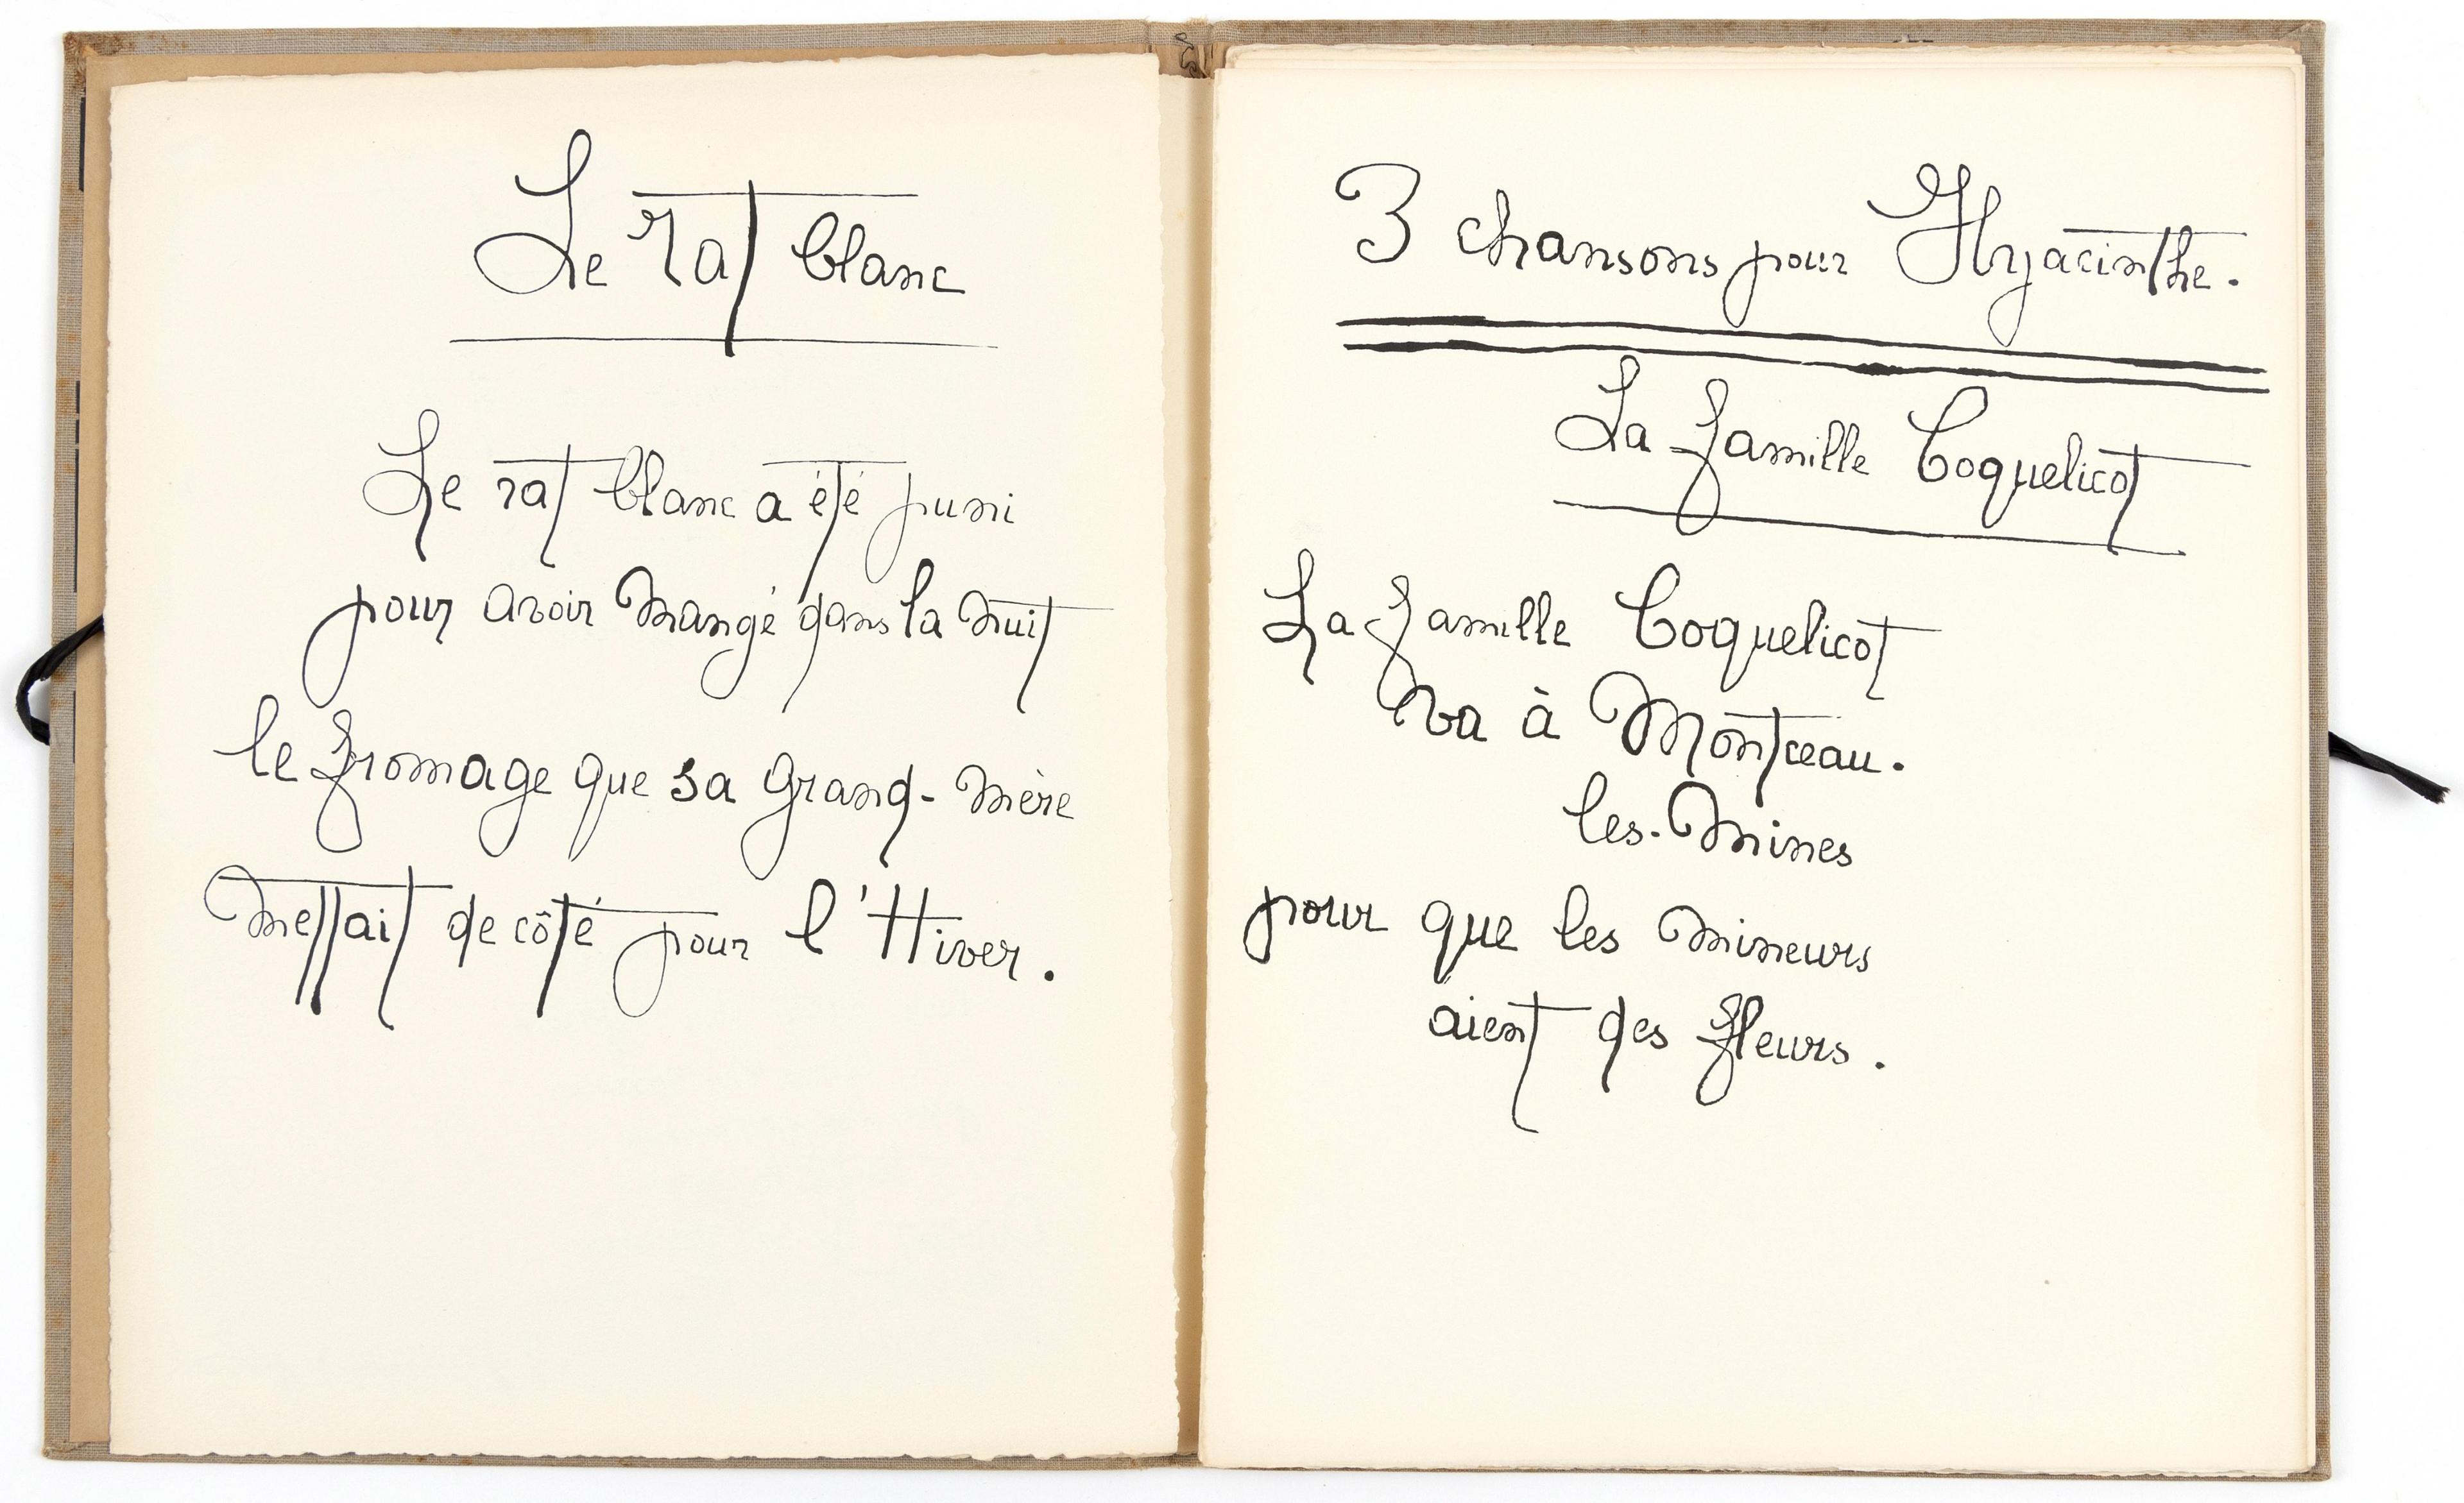 Le rat blanc
Le rat blanc a été puni
pour avoir mangé dans la nuit
le fromage que sa grand-mère
mettait de côté pour l'Hiver.
3 chansons pour Hyacinthe.
La famille Coquelicot
La famille Coquelicot
va à Montceau.
les-mines
pour que les mineurs
aient des fleurs.